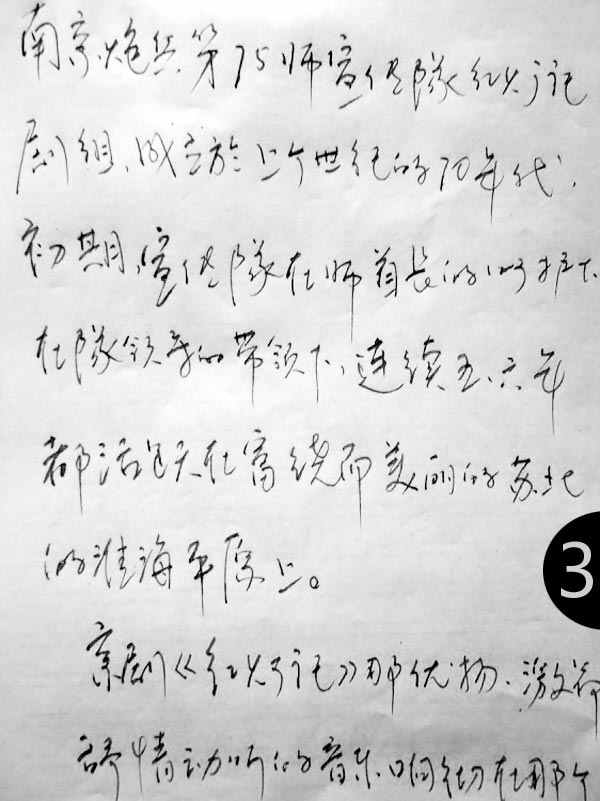 南京炮兵第75师宣传隊红灯记
剧组、成立於上个世纪的70年代、
初期、宣传隊在师首长的呵护下
在隊领导的带领下、连续五、六年
都活跃在富绕而美丽的苏北
的淮海平原上。
3
京剧《红灯记》那优扬、激昂
舒情动听的音乐响彻在那个